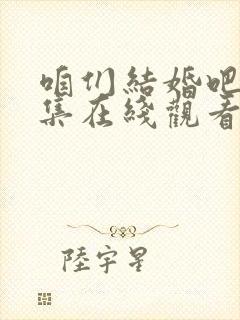 咱们結婚吧
集在綫觀看
陸宇星